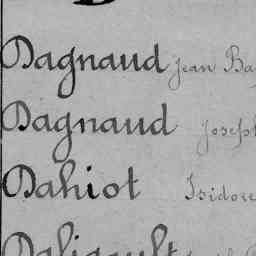 Dagnaud Jean Ba
Dagnaud Joseph
Dahiot Isidore
Daligault